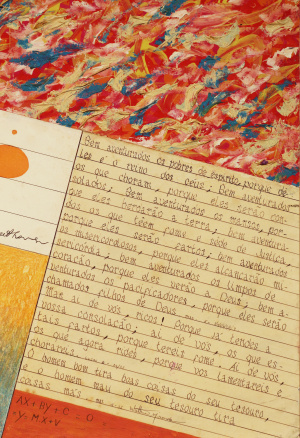 Bem aventurados os pobres de espírito, porque de-
les é o reino dos Deus; Bem aventurados
os que choram, porque eles serão con-
solados; Bem aventurados os mansos, por-
que eles herdarão a terra; bem aventura-
dos os que sêem fome e sêde de Justiça,
porque eles serão fartos; bem aventurados
os misericordiosos, porque eles alcançarão mi-
sericórdia; bem aventurados os limpos de
coração, porque eles verão a Deus; bem a-
venturados os pacificadores, porque eles serão
chamados filhos de Deus
Mas ai de vós, ricos! Porque já tendes a
vossa consolação; ai de vós, os que es-
tais fartos, porque tereis fome. Ai de vós,
os que agora rides, porque vos lamentareis e
chorareis.
O homem bom tira boas coisas do seu tesouro,
e o homem mau do seu tesouro tira
coisas más
AX + By + C = 0
-y = MX + V